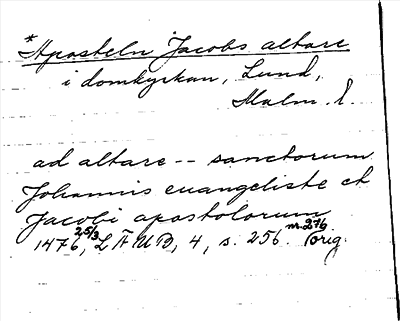 *Aposteln Jacobs altare
i domkyrkan, Lund,
Malm. l.
ad altare -- sanctorum
Johannis euangeliste et
Jacobi apostolorum
1476 25/3, L Ä U B, 4, s. 256 nr. 276. orig.